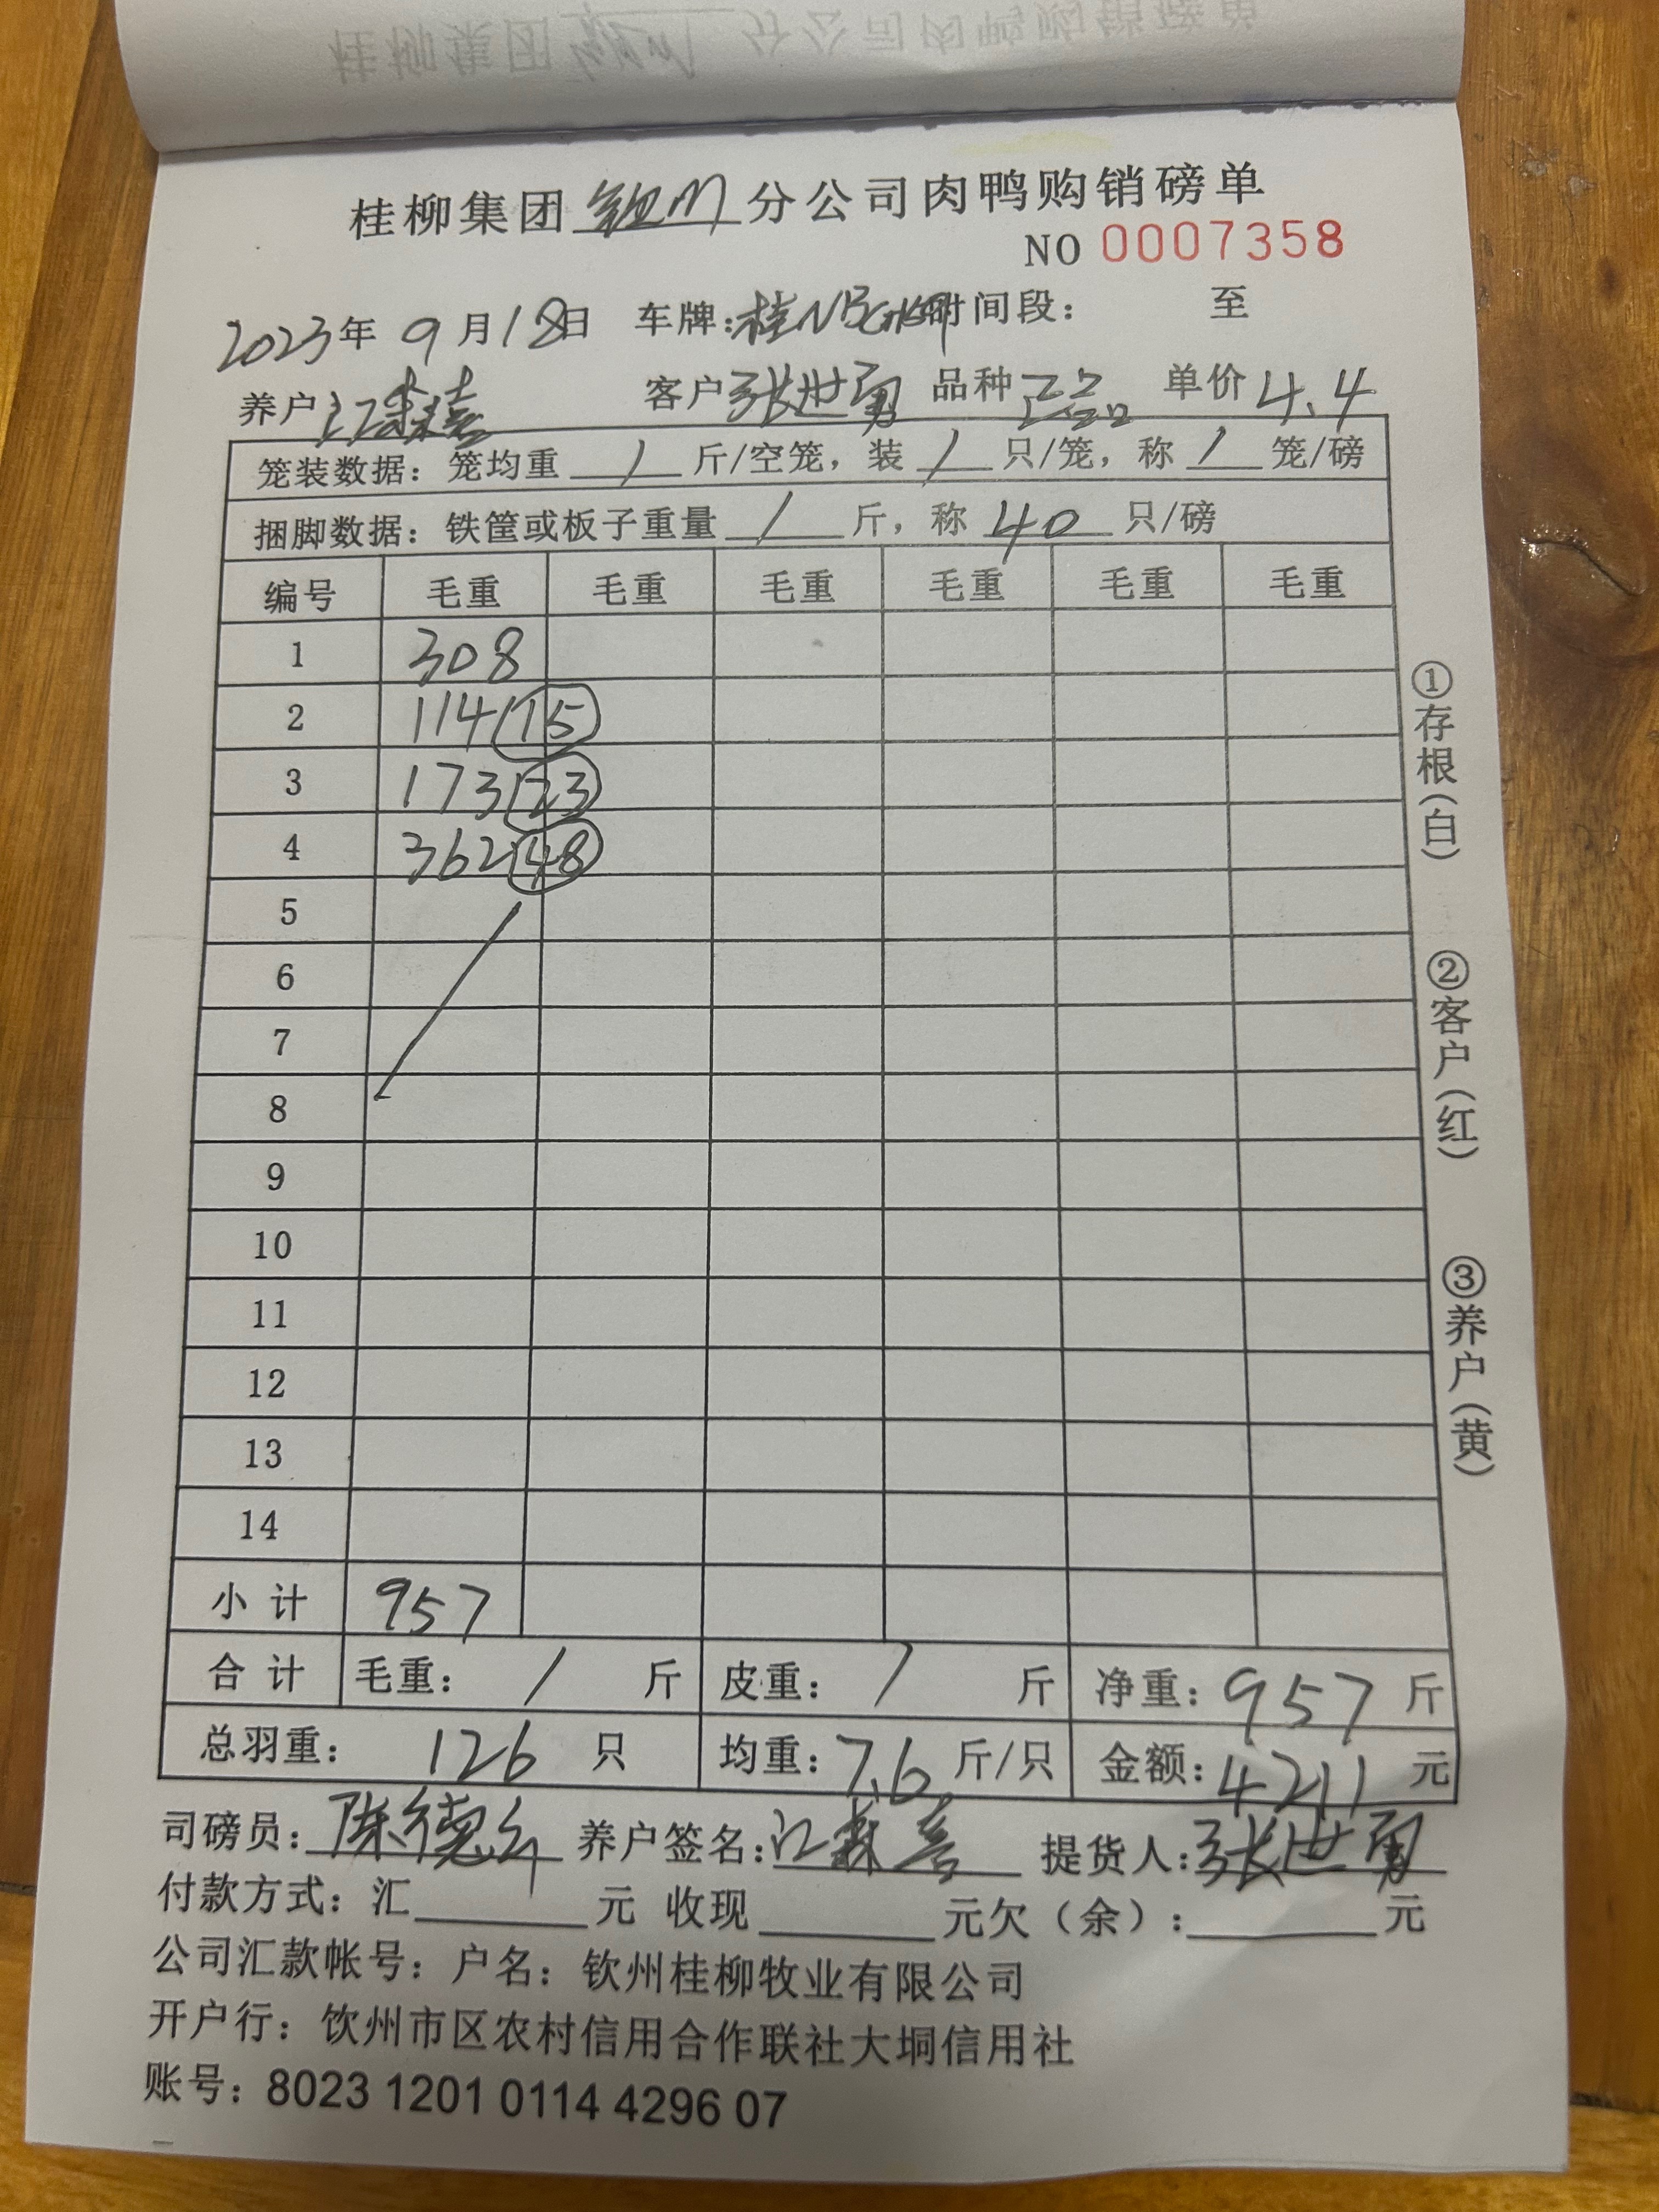 桂柳集团钦州分公司肉鸭购销磅单
NO 0007358
2023年 9月18日 车牌:桂N 时间段: 至
养户 江森 客户 张世勇 品种 单价 4.4
笼装数据: 笼均重 / 斤/空笼, 装 / 只/笼, 称 / 笼/磅
捆脚数据: 铁筐或板子重量 / 斤, 称 40 只/磅
编号 毛重 毛重 毛重 毛重 毛重 毛重
1 308
2 114 (15)
3 173 (23)
4 362 (48)
5
6
7
8
9
10
11
12
13
14
小计 957
合计 毛重: / 斤 皮重: / 斤 净重: 957 斤
总羽重: 126 只 均重: 7.6 斤/只 金额: 4211 元
司磅员: 陈德 养户签名: 江森 提货人: 张世勇
付款方式: 汇 元 收现 元欠(余): 元
公司汇款帐号: 户名: 钦州桂柳牧业有限公司
开户行: 饮州市区农村信用合作联社大垌信用社
账号: 8023 1201 0114 4296 07
①存根(白)
②客户(红)
③养户(黄)